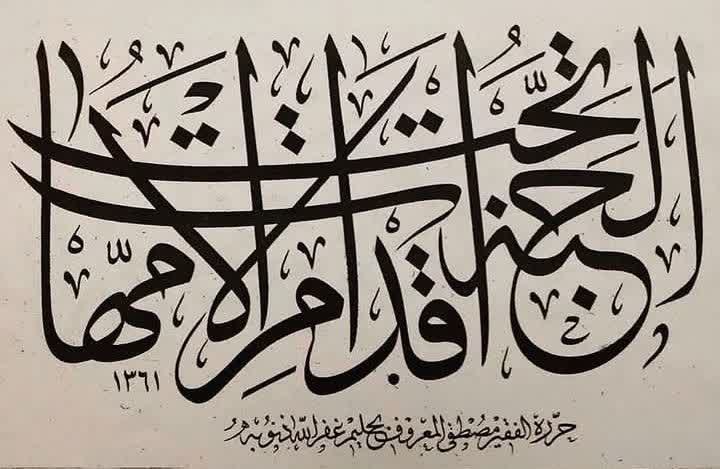 الجنة تحت اقدام الامهات
١٣٦١
حرره الفقير مصطفى المعروف بحليم غفر الله ذنوبه